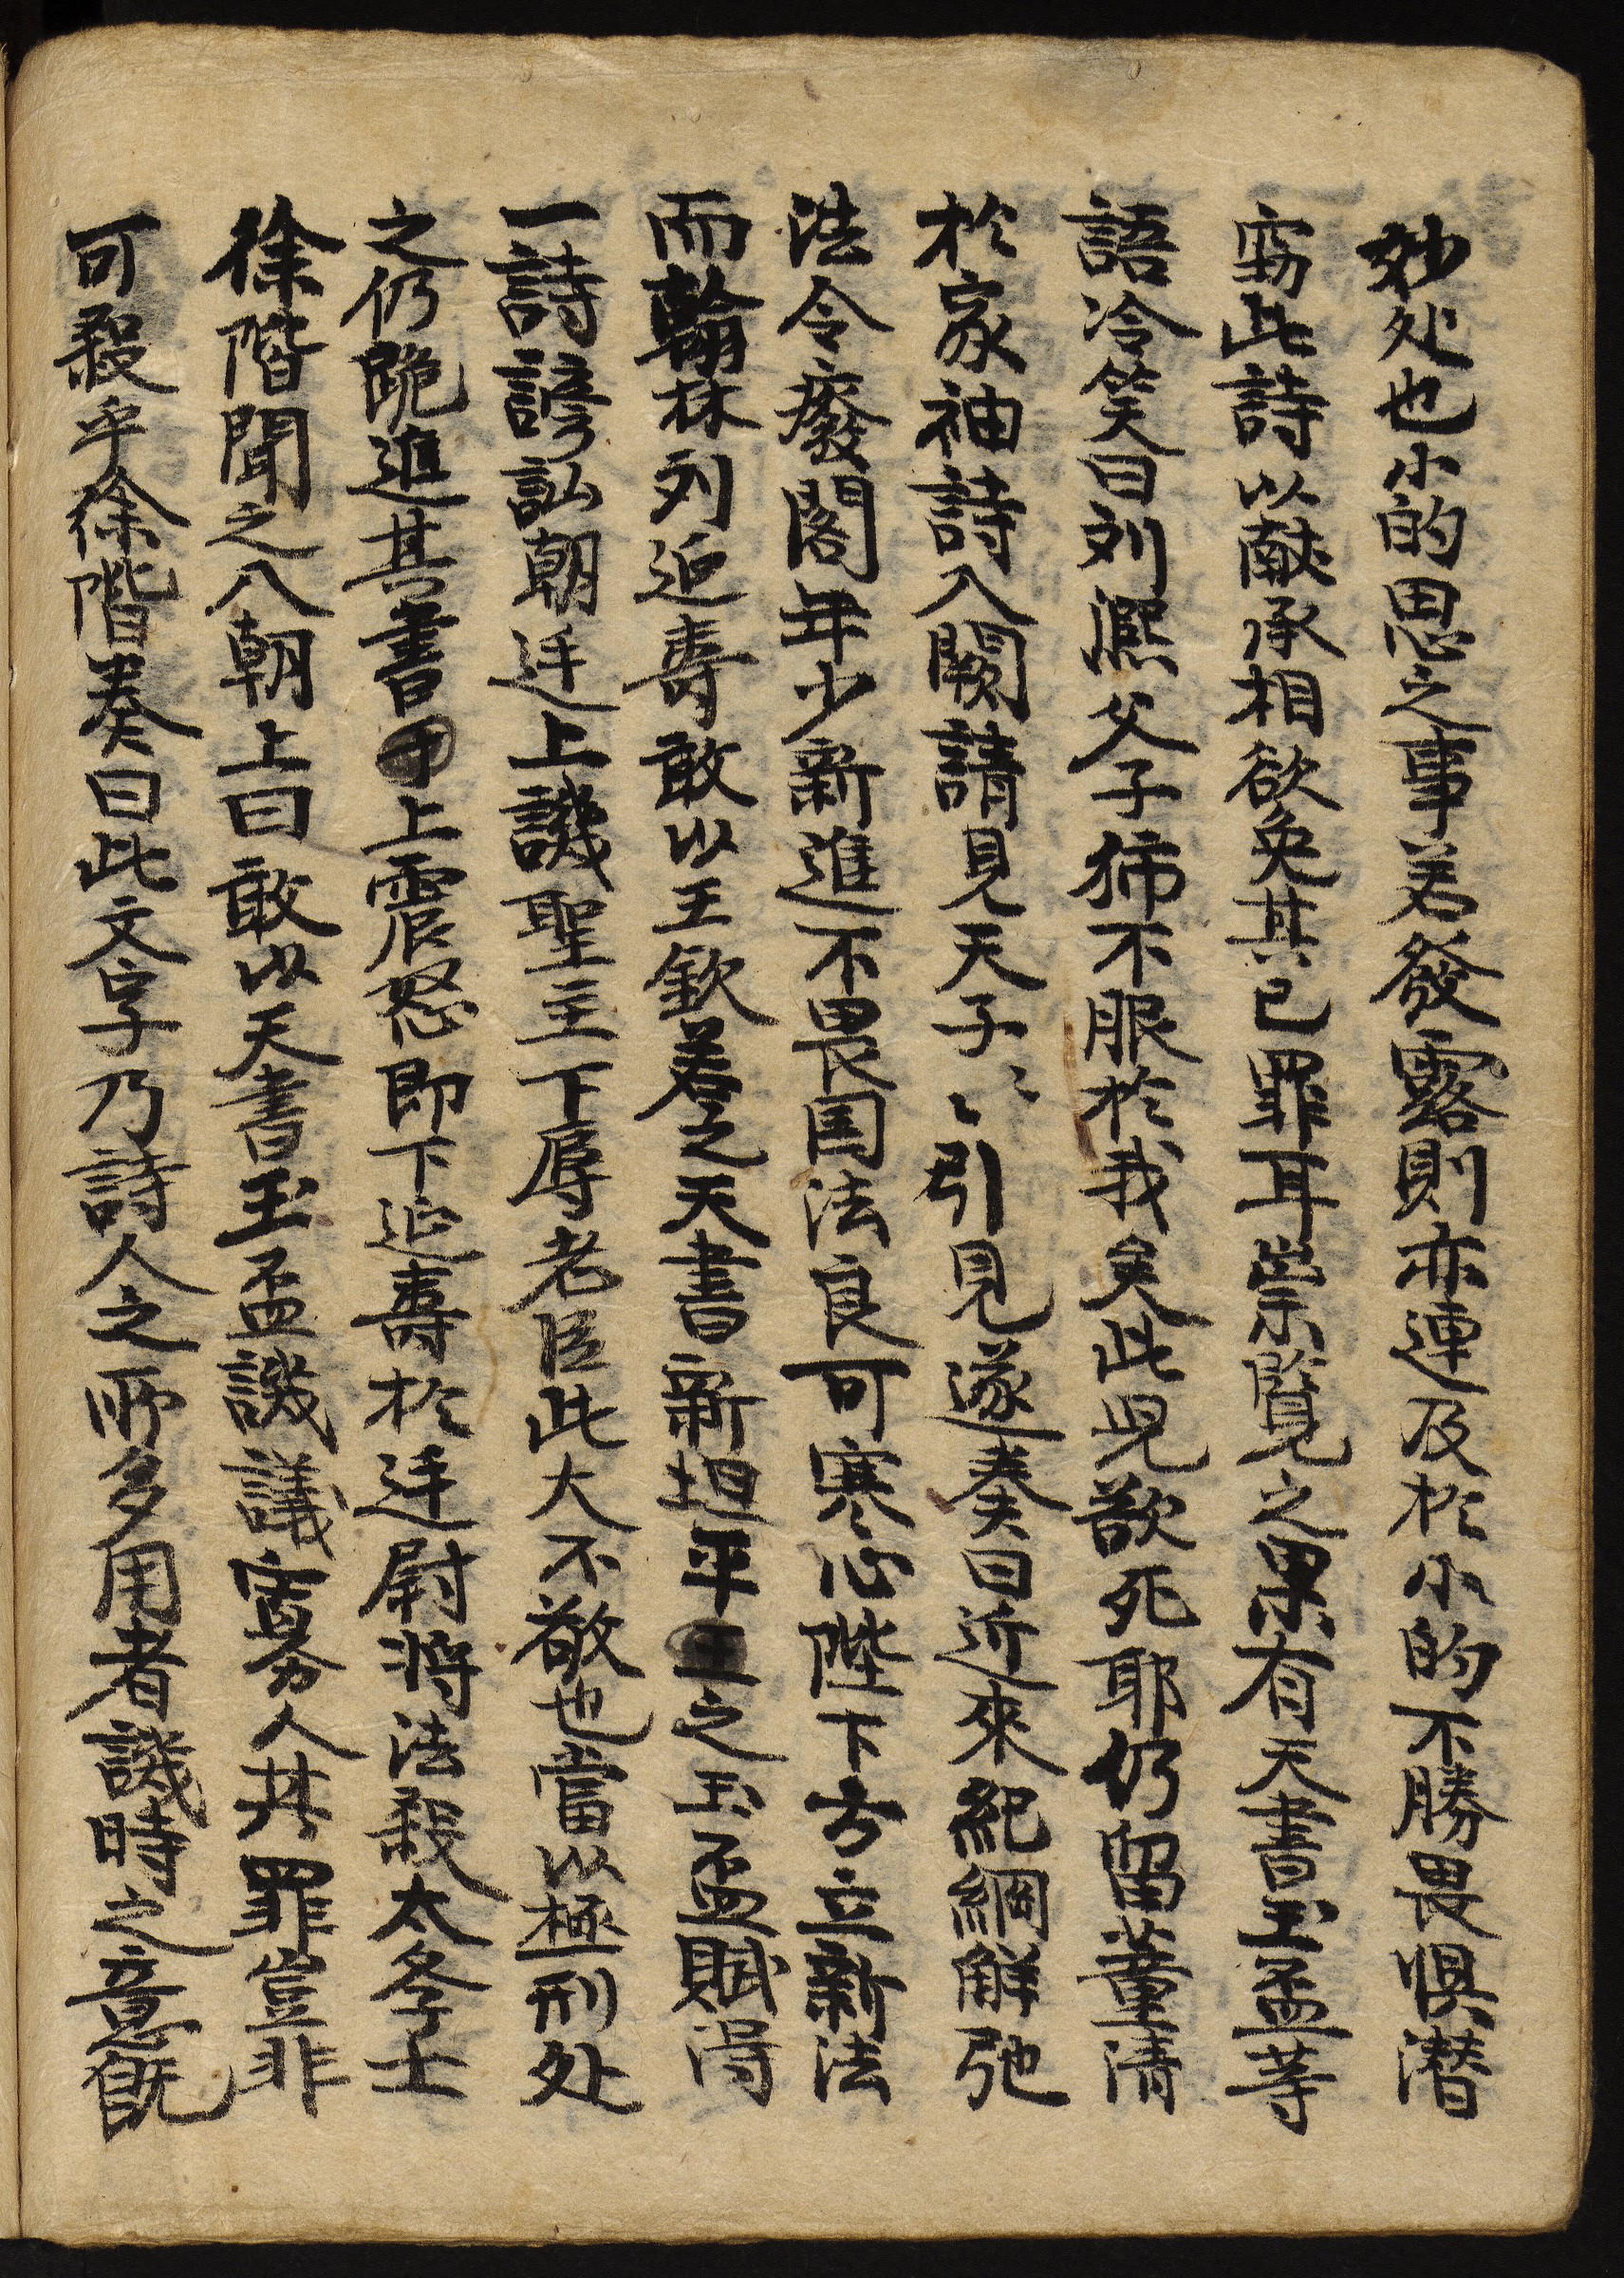 妙处也小的思之事若發露則亦連及於小的不勝畏惧潛
窃此詩以献承相欲免其已罪耳崇覽之果有天書玉盃等
語冷笑曰刘熙父子犹不服於我矣此児欲死耶仍留董清
於家袖詩入闕請見天子〻〻引見遂奏曰近來紀綱解弛
法令癈閣年少新進不畏国法良可寒心陛下方立新法
而翰林刘延壽敢以王欽若之天書新坦平之玉盃賦得
一詩謗訕朝廷上譏聖主下辱老臣此大不敬也當以極刑处
之仍跪進其書上震怒即下延壽於廷尉將法殺太学士
徐階聞之入朝上曰敢以天書玉盃譏議寡人其罪豈非
可殺乎徐階奏曰此文字乃詩人之所多用者譏時之意旣